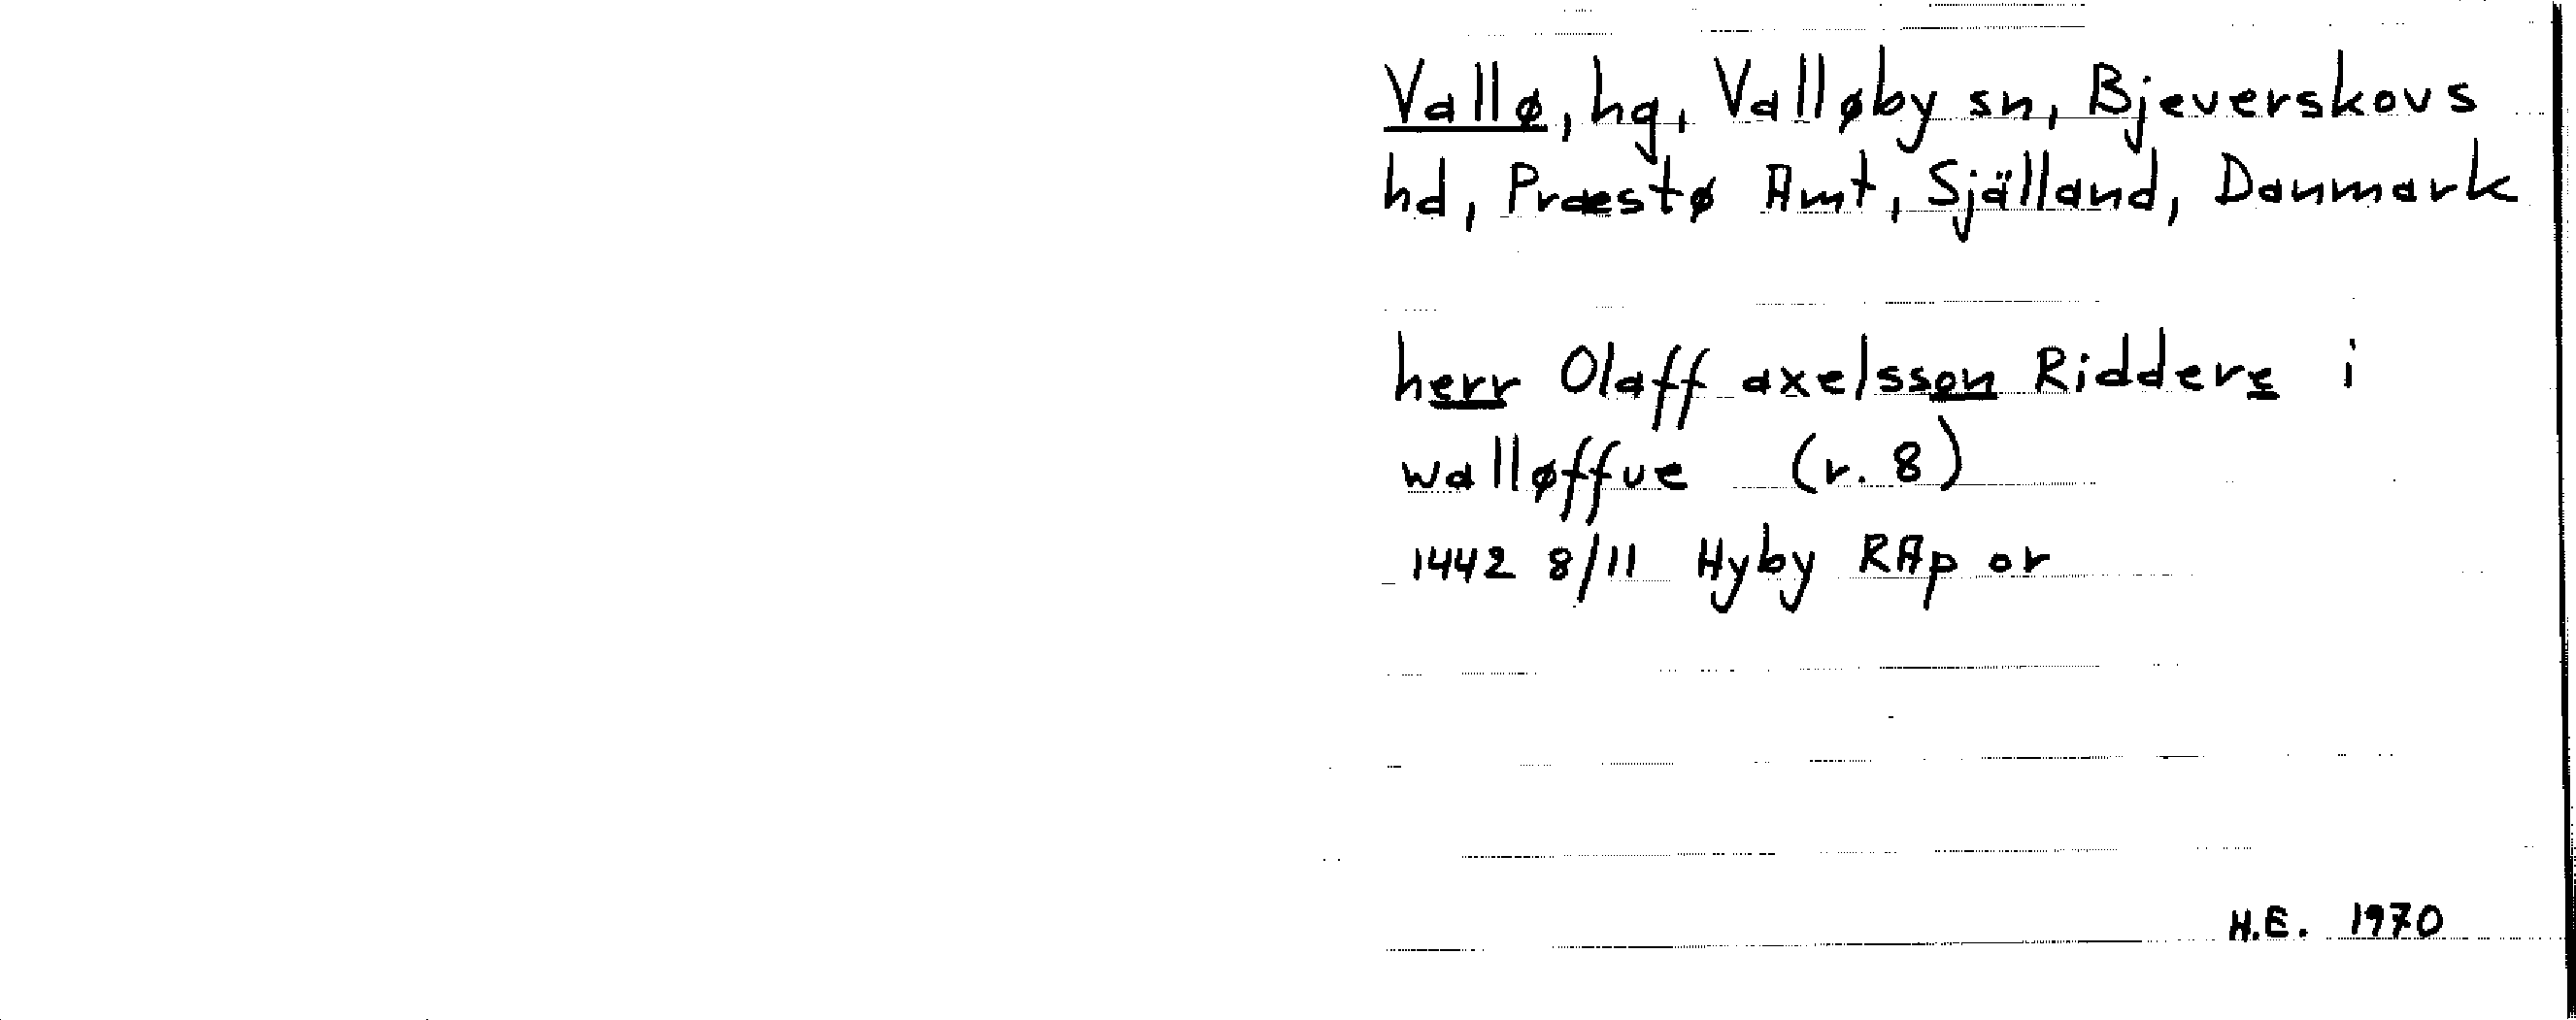 Vallø, hg, Valløby sn, Bjeverskovs
hd, Præstø Amt, Själland, Danmark
herr Olaff axelsson Riddere i
walløffue (r. 8)
1442 8/11 Hyby RAp or
H.E. 1970